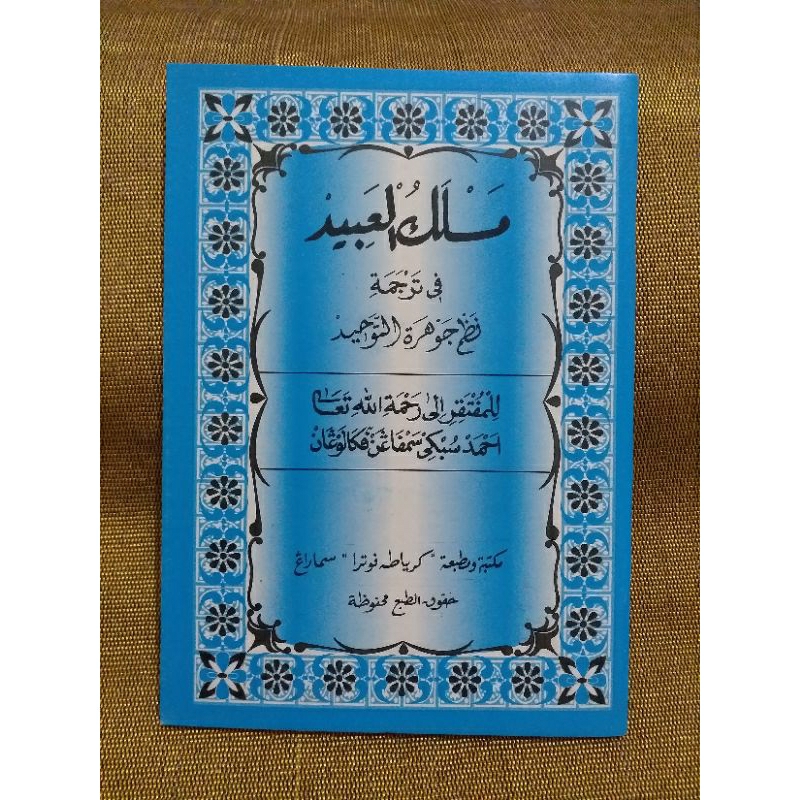 مَسْلَكُ الْعَبِيْدِ
فِى تَرْجَمَةِ
نَظْمِ جَوْهَرَةِ التَّوْحِيْدِ
لِلْمُفْتَقِرِ اِلٰى رَحْمَةِ اللّٰهِ تَعَالٰى
اَحْمَدْ سُبْكِىْ سَمْفَاغَنْ فَكَالَوْڠَانْ
مكتبة ومطبعة "كرياطه فوترا" سماراڠ
حقوق الطبع محفوظة